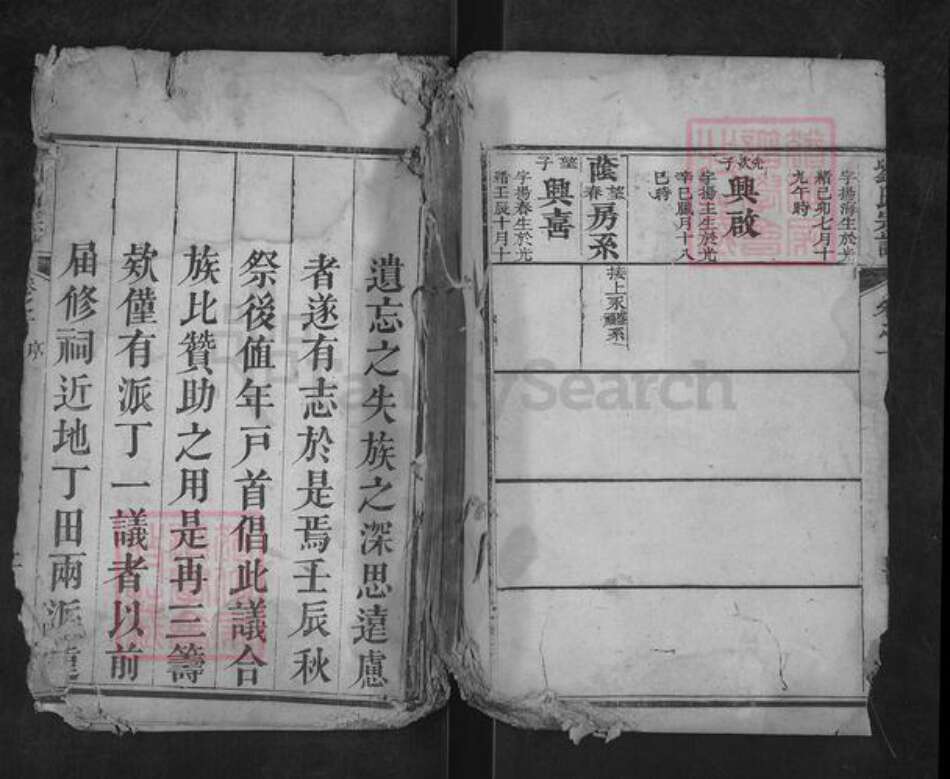 字揚海生於光
緒己卯七月十
九午時
光欽子
興啟
字揚主生於光
緒辛巳臘月十八
巳時
蔭春房系
接上永蔭系
望子
興喜
字揚春生於光
緒壬辰十月十
遺忘之失族之深思遠慮
者遂有志於是焉壬辰秋
祭後值年戸首倡此議合
族比贊助之用是再三籌
欵僅有派丁一議者以前
届修祠近地丁田兩派
序
FamilySearch